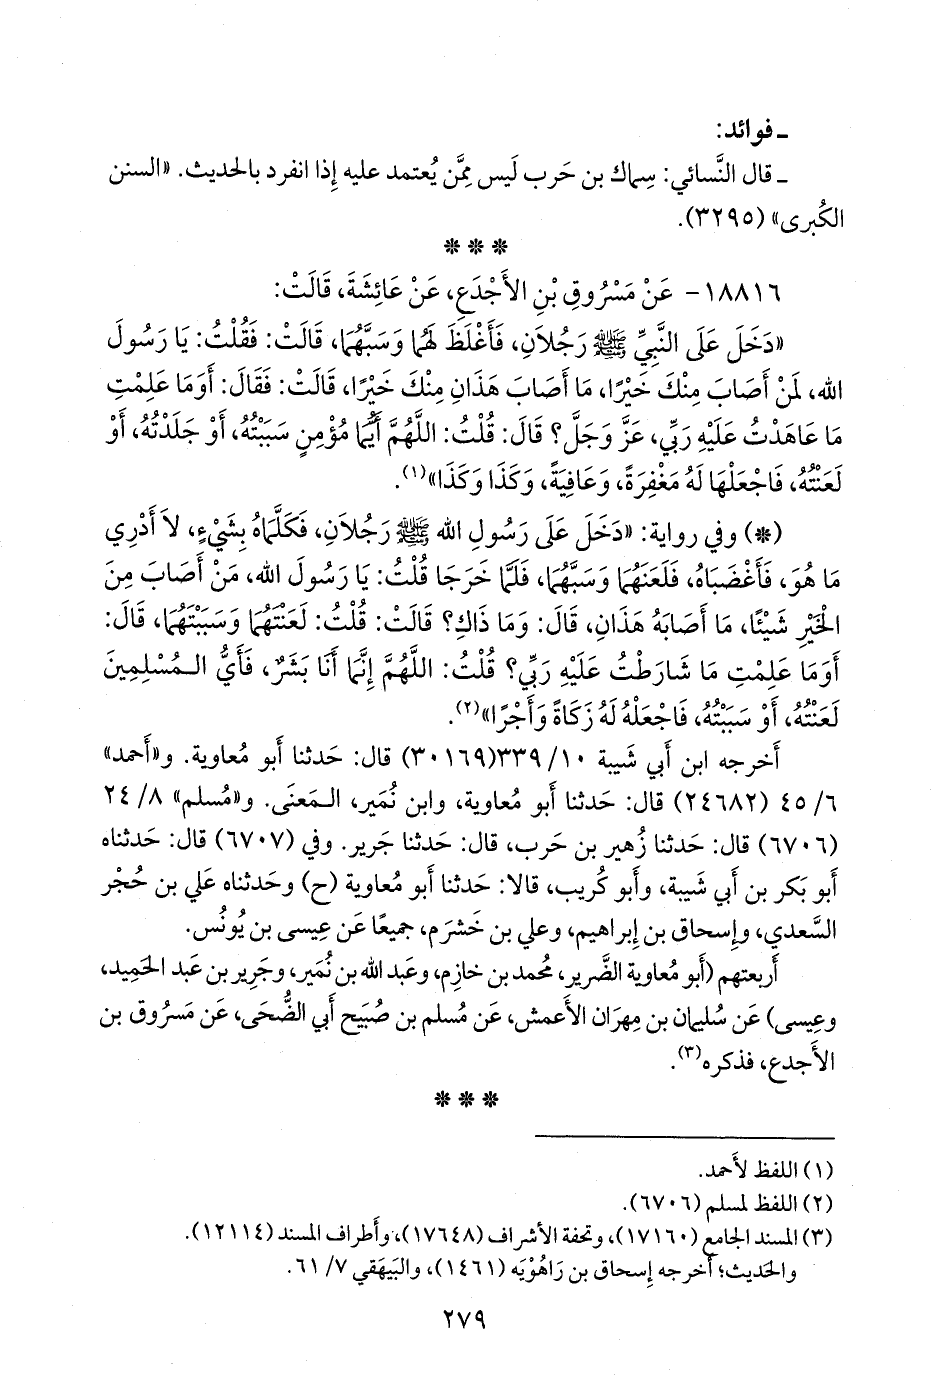 ـ فوائد:
ـ قال النَّسائي: سِماك بن حَرب لَيس مِمَّن يُعتمد عليه إِذا انفرد بالحديث. «السنن
الكُبرى» (٣٢٩٥).
* * *
١٨٨١٦- عَنْ مَسْرُوقِ بْنِ الأَجْدَعِ، عَنْ عَائِشَةَ، قَالَتْ:
«دَخَلَ عَلَى النَّبِيِّ ﷺ رَجُلاَنِ، فَأَغْلَظَ لَهُمَا وَسَبَّهُمَا، قَالَتْ: فَقُلْتُ: يَا رَسُولَ
الله، لَمَنْ أَصَابَ مِنْكَ خَيْرًا، مَا أَصَابَ هَذَانِ مِنْكَ خَيْرًا، قَالَتْ: فَقَالَ: أَوَمَا عَلِمْتِ
مَا عَاهَدْتُ عَلَيْهِ رَبِّي، عَزَّ وَجَلَّ؟ قَالَ: قُلْتُ: اللَّهُمَّ أَيُّمَا مُؤْمِنٍ سَبَبْتُهُ، أَوْ جَلَدْتُهُ، أَوْ
لَعَنْتُهُ، فَاجْعَلْهَا لَهُ مَغْفِرَةً، وَعَافِيَةً، وَكَذَا وَكَذَا»(١).
(*) وفي رواية: «دَخَلَ عَلَى رَسُولِ الله ﷺ رَجُلاَنِ، فَكَلَّمَاهُ بِشَيْءٍ، لاَ أَدْرِي
مَا هُوَ، فَأَغْضَبَاهُ، فَلَعَنَهُمَا وَسَبَّهُمَا، فَلَمَّا خَرَجَا قُلْتُ: يَا رَسُولَ الله، مَنْ أَصَابَ مِنَ
الْخَيْرِ شَيْئًا، مَا أَصَابَهُ هَذَانِ، قَالَ: وَمَا ذَاكِ؟ قَالَتْ: قُلْتُ: لَعَنْتَهُمَا وَسَبَبْتَهُمَا، قَالَ:
أَوَمَا عَلِمْتِ مَا شَارَطْتُ عَلَيْهِ رَبِّي؟ قُلْتُ: اللَّهُمَّ إِنَّمَا أَنَا بَشَرٌ، فَأَيُّ الـمُسْلِمِينَ
لَعَنْتُهُ، أَوْ سَبَبْتُهُ، فَاجْعَلْهُ لَهُ زَكَاةً وَأَجْرًا»(٢).
أَخرجه ابن أبي شيبة ١٠/ ٣٣٩(٣٠١٦٩) قال: حَدثنا أَبو مُعاوية. و«أَحمد»
٦/ ٤٥ (٢٤٦٨٢) قال: حَدثنا أَبو مُعاوية، وابن نُمَير، الـمَعنَى. و«مُسلم» ٨/ ٢٤
(٦٧٠٦) قال: حَدثنا زُهير بن حَرب، قال: حَدثنا جَرير. وفي (٦٧٠٧) قال: حَدثناه
أَبو بَكر بن أَبي شَيبة، وأَبو كُريب، قالا: حَدثنا أَبو مُعاوية (ح) وحَدثناه عَلي بن حُجْر
السَّعدي، وإِسحاق بن إِبراهيم، وعلي بن خَشرَم، جميعًا عَن عِيسى بن يُونُس.
أَربعتهم (أَبو مُعاوية الضَّرير، مُحمد بن خازِم، وعَبد الله بن نُمَير، وجَرِير بن عَبد الحَمِيد،
وعِيسى) عَن سُليمان بن مِهرَان الأَعمش، عَن مُسلم بن صُبَيح أَبي الضُّحَى، عَن مَسرُوق بن
الأَجدع، فذكره(٣).
* * *
(١) اللفظ لأَحمد.
(٢) اللفظ لمسلم (٦٧٠٦).
(٣) المسند الجامع (١٧١٦٠)، وتحفة الأشراف (١٧٦٤٨)، وأطراف المسند (١٢١١٤).
والحَديث؛ أَخرجه إِسحاق بن رَاهُوْيَه (١٤٦١)، والبَيهَقي ٧/ ٦١.
٢٧٩